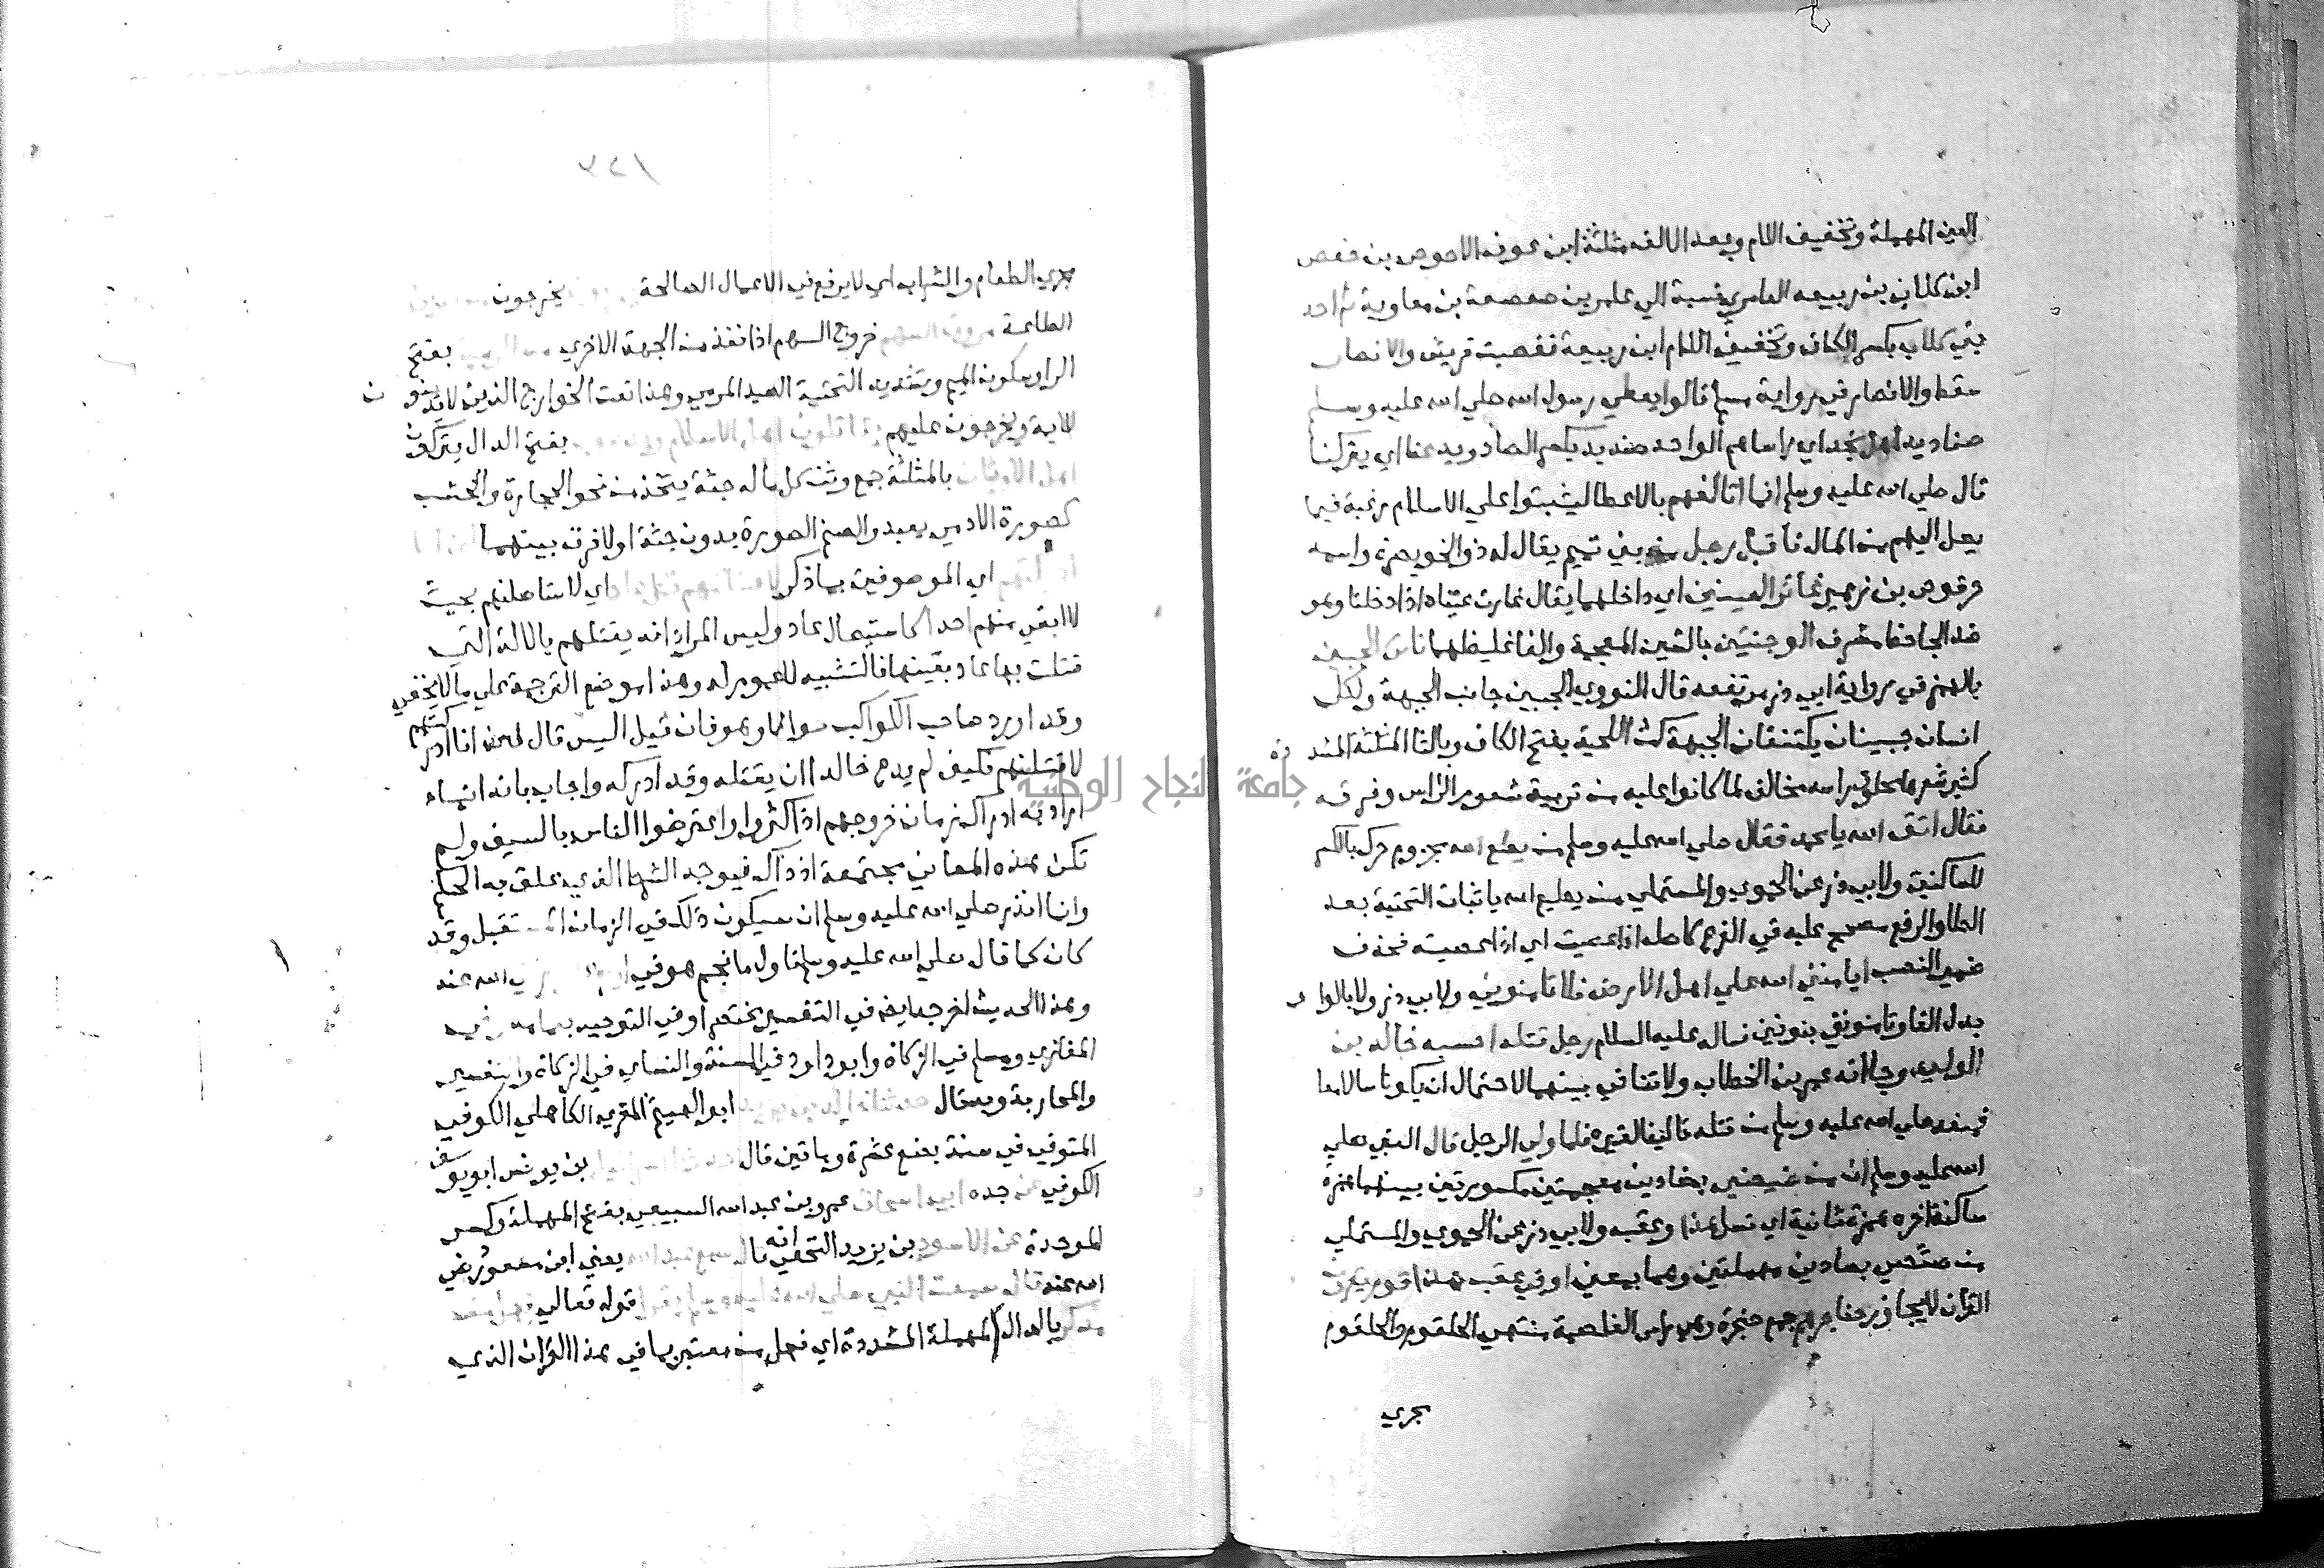 العين المهملة وتخفيف اللام وبعد الالف مثلثة ابن عوف الاحوص بن جعفر
ابن كلاب بن ربيعه العامري نسبة الي عامر بن صعصعة بن معاوية ثم احد
بني كلاب بكسر الكاف وتخفيف اللام ابن ربيعة فغضبت قريش والانصار
سقط والانصار في رواية مسلم قالوا يعطي رسول الله صلي الله عليه وسلم
صناديد اهل نجد اي راساهم الواحد صنديد بكسر الصاد ويدعنا اي يتركنا
قال صلي الله عليه وسلم انما اتالفهم بالاعطا ليثبتوا علي الاسلام رغبة فيما
يصل اليهم من المال فاقبل رجل من بني تميم يقال له ذو الخويصرة واسمه
حرقوص بن زهير غائر العينين اي داخلهما يقال غارت عيناه اذا دخلتا وهو
ضد الجاحظ مشرف الوجنتين بالشين المعجمة والفا غليظهما ناتئ الجبين
بالهمز في رواية ابي ذر مرتفعه قال النووي الجبين جانب الجبهة ولكل
انسان جبينان يكتنفان الجبهة كث اللحية بفتح الكاف وبالثا المثلثة المشددة
كثير شعرها محلوق راسه مخالف لما كانوا عليه من تربية شعور الراس وفرقه
فقال اتق الله يا محمد فقال صلي الله عليه وسلم من يطع الله مجزوم حرك بالكسر
للساكنين ولابي ذر عن الحموي والمستملي من يطيع الله باثبات التحتية بعد
الطا والرفع مصحح عليه في الفرع كاصله اذا عصيت اي اذا عصيته فحذف
ضمير النصب ايامنني الله علي اهل الارض فلا تامنوني ولابي ذر ولا بالواو
بدل الفا وتامنونني بنونين فساله عليه السلام رجل قتله احسبه خالد بن
الوليد وجا انه عمر بن الخطاب ولا تنافي بينهما لاحتمال ان يكونا سالا معا
فمنعه صلي الله عليه وسلم من قتله تاليفا لغيره فلما ولي الرجل قال النبي صلي
الله عليه وسلم ان من ضيضئ بضادين معجمتين مكسورتين بينهما همزة
ساكنة اخره همزة ثانية اي نسل هذا وعقبه ولابي ذر عن الحموي والمستملي
من صئصئ بصادين مهملتين وهما بمعني او في عقب هذا قوم يقرون
القران لا يجاوز حناجرهم جمع حنجرة وهي راس الغلصمة منتهي الحلقوم والحلقوم
مجري
مجري الطعام والشراب اي لا يرفع في الاعمال الصالحة يخرجون
الطاعة مروق السهم خروج السهم اذا نفذ من الجهة الاخري من الرمية بفتح
الرا وسكون الميم وتشديد التحتية الصيد المرمي وهذا نعت الخوارج الذين لا يدينون
للايمة ويخرجون عليهم يقتلون اهل الاسلام ويدعون بفتح الدال يتركون
اهل الاوثان بالمثلثة جمع وثن كل ما له جثة يتخذ من نحو الحجارة والخشب
كصورة الادمي يعبد والصنم الصورة بدون جثة او لا فرق بينهما
اي الموصوفين بما ذكر لاقتلنهم قتل عاد اي لاستاصلنهم بحيث
لا ابقي منهم احدا كاستيصال عاد وليس المراد انه يقتلهم بالالة التي
قتلت بها عاد بعينها فالتشبيه لا عموم له وهذا موضع الترجمة علي ما لا يخفي
وقد اورد صاحب الكواكب سوالا وهو فان قيل اليس قال لئن انا ادركتهم
لاقتلنهم فكيف لم يدع خالدا ان يقتله وقد ادركه واجاب بانه انما
اراد به ادراك زمان خروجهم اذا كثروا واعترضوا الناس بالسيف ولم
تكن هذه المعاني مجتمعة اذ ذاك فيوجد الشرط الذي علق به الحكم
وانما انذر صلي الله عليه وسلم ان سيكون ذلك في الزمان المستقبل وقد
كان كما قال صلي الله عليه وسلم فاول ما نجم هو في الله عنه
وهذا الحديث اخرجه ايضا في التفسير مختصرا وفي التوحيد بتمامه وفي
المغازي ومسلم في الزكاة وابو داود في السنة والنساي في الزكاة والتفسير
والمحاربة وبه قال حدثنا خالد بن يزيد ابو الهيثم المقري الكاهلي الكوفي
المتوفي في سنة بضع عشرة وماتين قال بن يونس ابو يوسف
الكوفي عن جده ابي اسحاق عمرو بن عبد الله السبيعي بفتح المهملة وكسر
الموحدة عن الاسود بن يزيد النخعي انه قال سمع عبد الله يعني ابن مسعود رضي
الله عنه قال سمعت النبي صلي الله عليه وسلم يقرا قوله تعالي فهل من
مدكر بالدال المهملة المشددة اي فهل من معتبر بما في هذا القران الذي
جامعة النجاح الوطنية